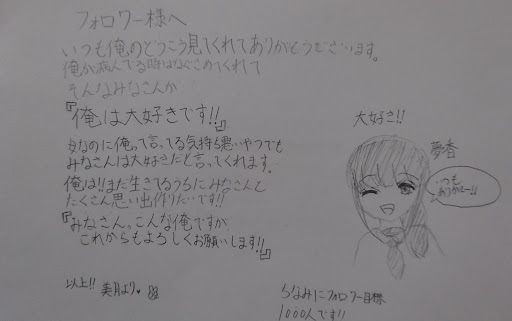 フォロワー様へ
いつも俺のどうこう見てくれてありがとうございます。
俺が病んでる時はなぐさめてくれて
そんなみなさんが
『俺は大好きです!!』
女なのに俺って言ってる気持ち悪いやつでも
みなさんは大好きだと言ってくれます。
俺は!!まだ生きてるうちにみなさんと
たくさん思い出作りたいです!!
『みなさん。こんな俺ですが
これからもよろしくお願いします!!』
以上!! 美月より♥
大好き!!
夢香
いつも
ありがとー!!
ちなみにフォロワー目標
1000人です!!